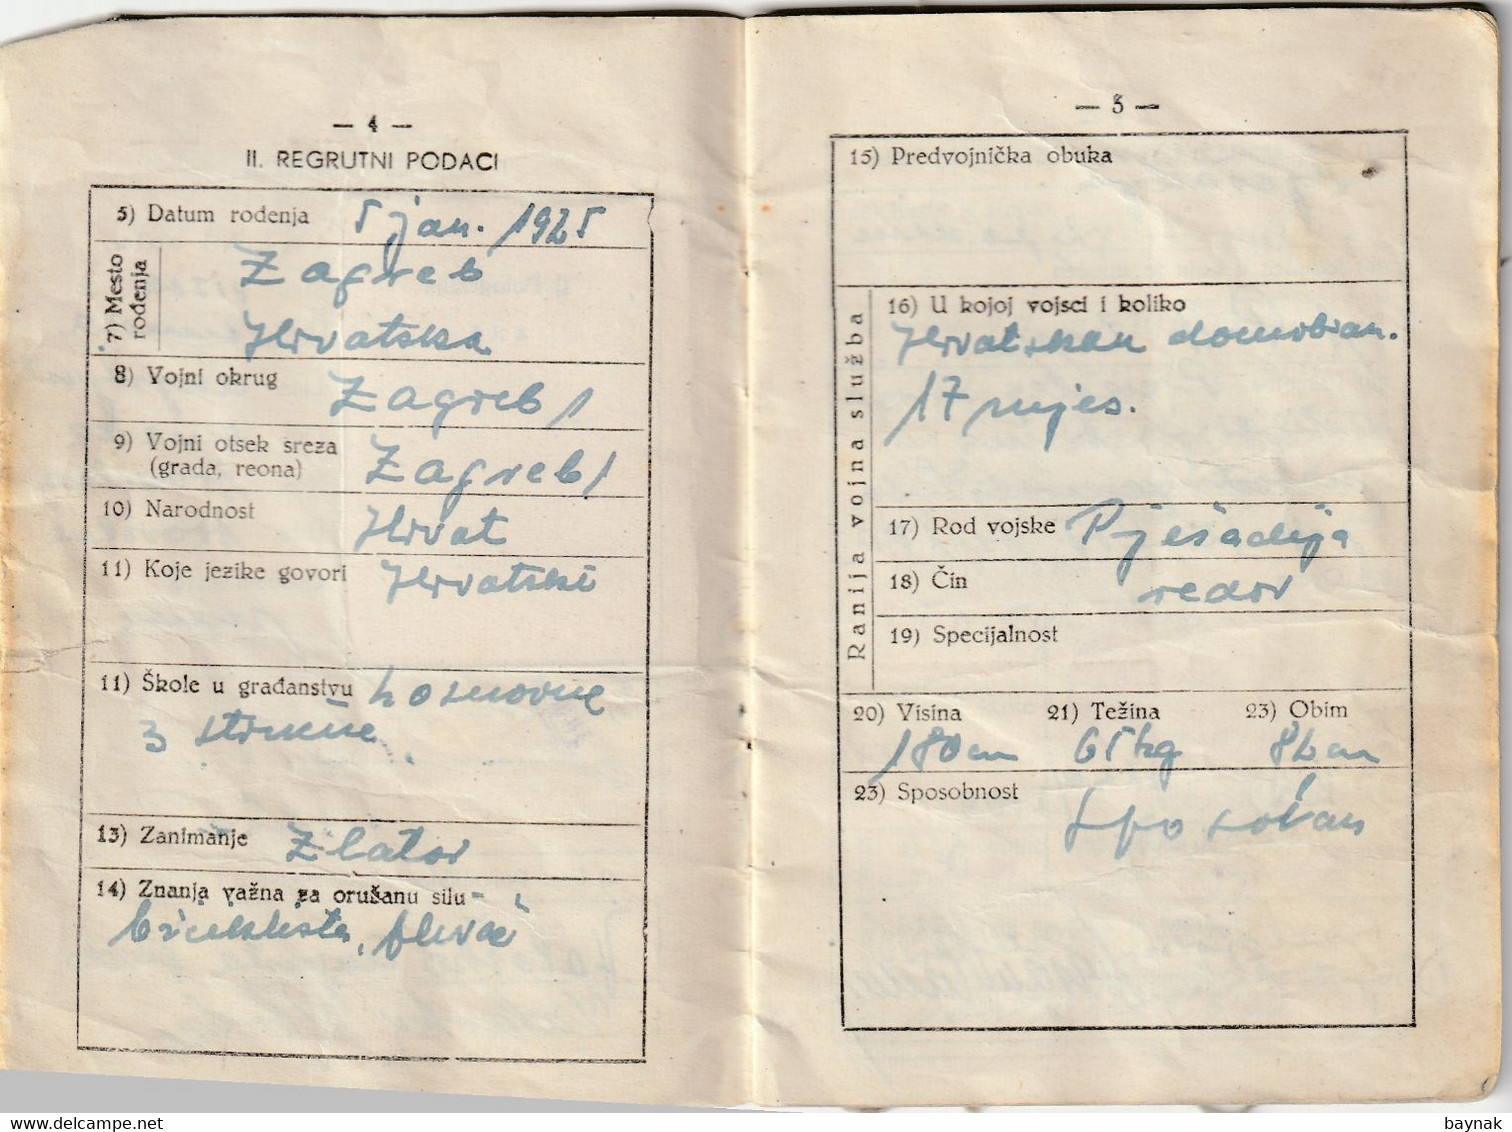 — 4 —
II. REGRUTNI PODACI
5) Datum rođenja 5 jan. 1925
7) Mesto rođenja
Zagreb
Hrvatska
8) Vojni okrug Zagreb I
9) Vojni otsek sreza
(grada, reona) Zagreb I
10) Narodnost Hrvat
11) Koje jezike govori Hrvatski
11) Škole u građanstvu osnovne
3 stručne
13) Zanimanje Zlator
14) Znanja važna za orušanu silu -
biciklista, plivač
— 5 —
15) Predvojnička obuka
Ranija vojna služba
16) U kojoj vojsci i koliko
Hrvatskom domobran.
17 mjes.
17) Rod vojske Pješadija
18) Čin redov
19) Specijalnost
20) Visina 21) Težina 23) Obim
180 cm 65 kg 86 cm
23) Sposobnost
sposoban
baynak